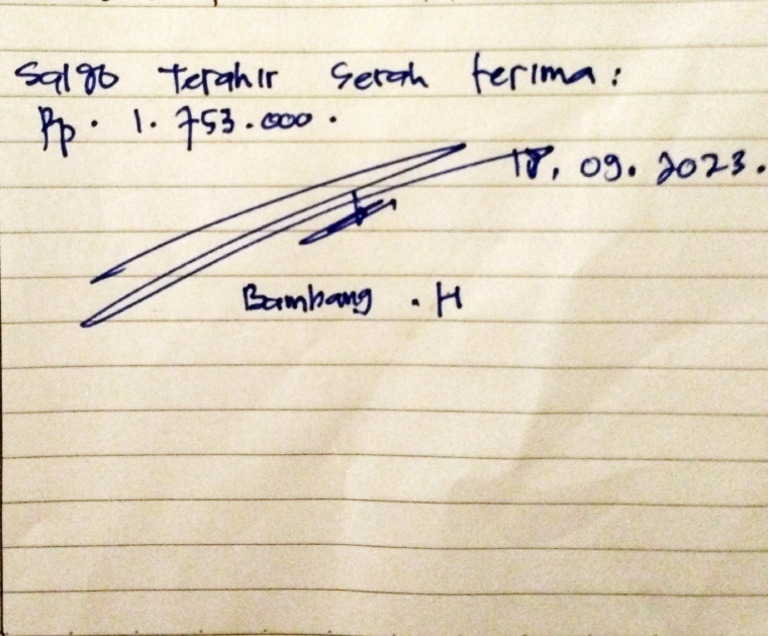 Saldo Terahir Serah terima :
Rp. 1.753.000.
18, 09. 2023.
Bambang . H